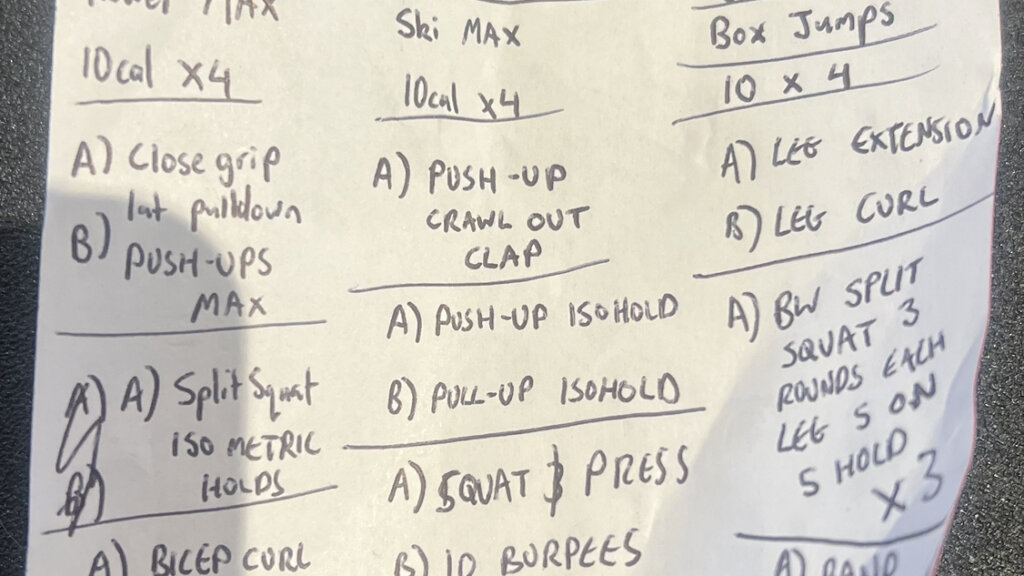 MAX
10cal x4
A) Close grip
lat pulldown
B) PUSH-UPS
MAX
A) Split Squat
ISO METRIC
HOLDS
A) BICEP CURL
Ski MAX
10cal x4
A) PUSH-UP
CRAWL OUT
CLAP
A) PUSH-UP ISOHOLD
B) PULL-UP ISOHOLD
A) SQUAT & PRESS
B) 10 BURPEES
Box Jumps
10 x 4
A) LEG EXTENSION
B) LEG CURL
A) BW SPLIT
SQUAT 3
ROUNDS EACH
LEG 5 ON
5 HOLD
x 3
A) BAND